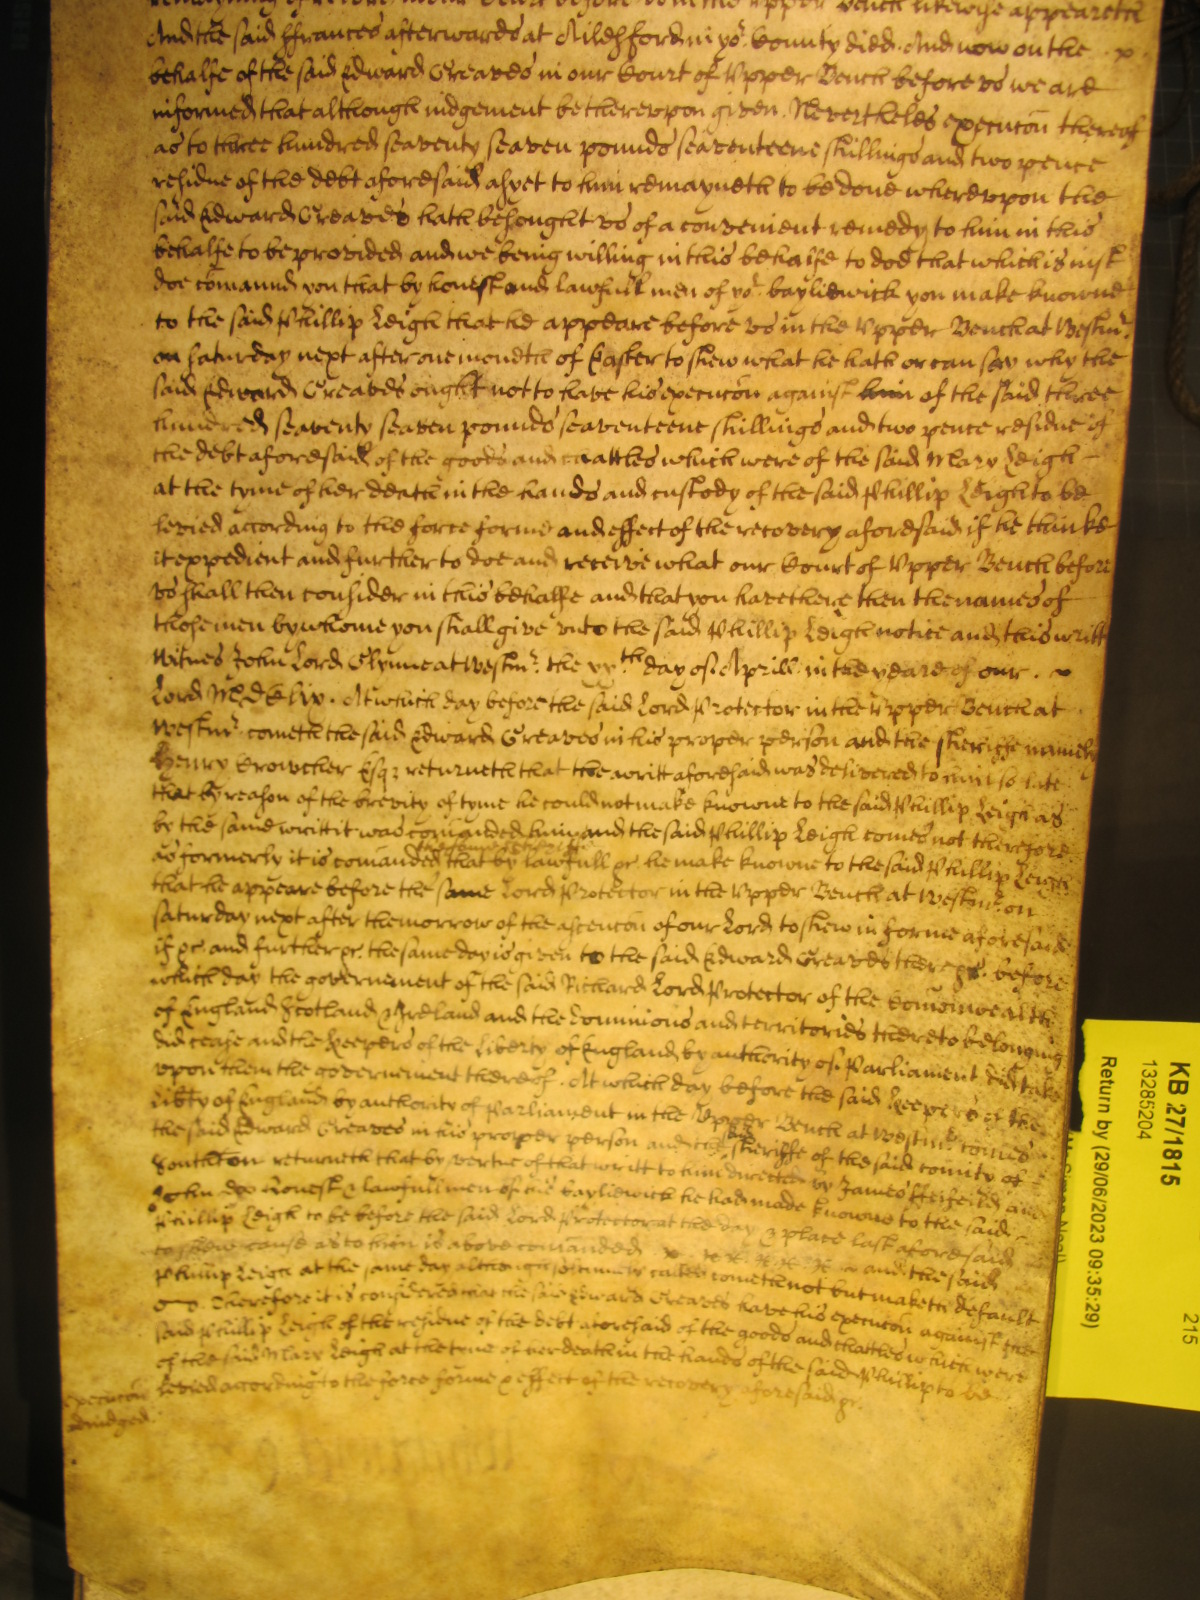 of record in our Court before us in the Upper Bench likewise appeareth
And the said Ffrances afterwards at in yor County died. And now on the . x .
behalfe of the said Edward Greaves in our Court of Upper Bench before us we are
informed that although iudgement be thereupon given. Neverthelės execucōn thereof
as to three hundred seaventy seaven pounds seaventeene shillings and two pence
residue of the debt aforesaid as yet to him remayneth to be done whereupon the
said Edward Greaves hath besought us of a convenient remedy to him in this
behalfe to be provided and we being willing in this behalfe to doe that which is iust
doe cōmaund you that by honest and lawfull men of yor bayliewick you make knowne
to the said Phillip Leigh that he appeare before us in the Upper Bench at Westmr.
on Saturday next after one moneth of Easter to shew what he hath or can say why the
said Edward Greaves ought not to have his execucōn against him of the said three
hundred seaventy seaven pounds seaventeene shillings and two pence residue of
the debt aforesaid of the goods and chattles which were of the said Mary Leigh -
at the tyme of her death in the hands and custody of the said Phillip Leigh to be
levied according to the force forme and effect of the recovery aforesaid if he thinke
it expedient and further to doe and receive what our Court of Upper Bench before
us shall then consider in this behalfe and that you have there then the names of
those men by whome you shall give unto the said Phillip Leigh notice and this writt
Witnes John Lord Glynne at Westmr. the xxth day of Aprill in the yeare of our . ~
Lord MDClix . At which day before the said Lord Protector in the Upper Bench at
Westmr. cometh the said Edward Greaves in his proper person and the sheriffe namely
Henry Crowcher Esqr returneth that the writt aforesaid was delivered to him so late
that by reason of the brevity of tyme he could not make knowne to the said Phillip Leigh as
by the same writt it was cōmanded him and the said Phillip Leigh comes not therefore
as formerly it is cōmanded that by lawfull &c he make knowne to the said Phillip Leigh
that he appeare before the same Lord Protector in the Upper Bench at Westmr. on
Saturday next after the morrow of the ascencōn of our Lord to shew in forme aforesaid
if &c and further &c. the same day is given to the said Edward Greaves there &c. before
which day the governement of the said Richard Lord Protector of the Comonwealth
of England Scotland & Ireland and the Dominions and territories thereto belonging
did cease and the Keepers of the Liberty of England by authority of Parliament did take
upon them the governement thereof. At which day before the said Keepers of the
Libty of England by authority of Parliament in the Upper Bench at Westmr. comes
the said Edward Greaves in his proper person and the sheriffe of the said county of
Southton returneth that by vertue of that writt to him directed by James and
John honest & lawfull men of his bayliewick he had made knowne to the said
Phillip Leigh to be before the said Lord Protector at the day & place last aforesaid
to shew cause as to him is above cōmanded and the said
Phillip Leigh at the same day although solemnly called cometh not but maketh default
Therefore it is considered that the said Edward Greaves have his execucōn against the
said Phillip Leigh of the residue of the debt aforesaid of the goods and chattles which were
of the said Mary Leigh at the tyme of her death in the hands of the said Phillip to be
levied according to the force forme & effect of the recovery aforesaid &c.
execucōn
adiudged
KB 27/1815
13285204
215
Return by (29/06/2023 09:35:29)